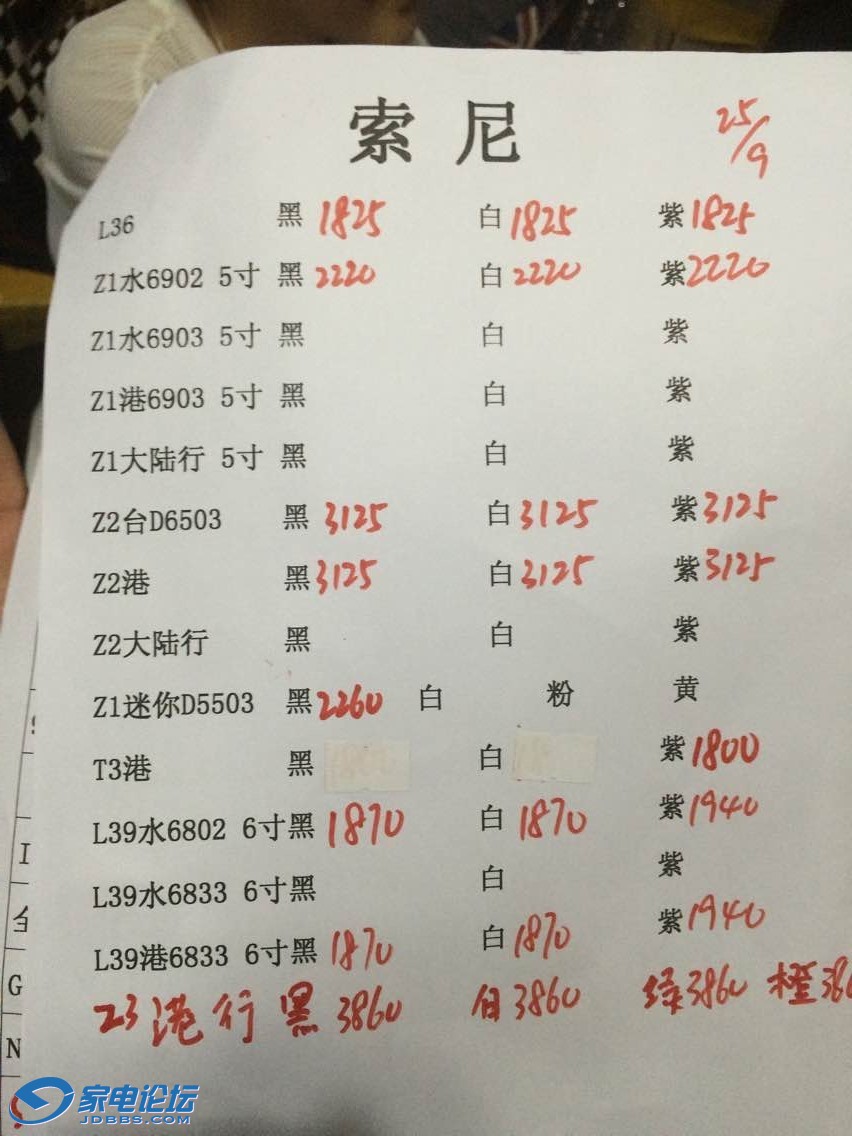 索尼
25/9
L36 黑 1825 白 1825 紫 1825
Z1水6902 5寸 黑 2220 白 2220 紫 2220
Z1水6903 5寸 黑 白 紫
Z1港6903 5寸 黑 白 紫
Z1大陆行 5寸 黑 白 紫
Z2台D6503 黑 3125 白 3125 紫 3125
Z2港 黑 3125 白 3125 紫 3125
Z2大陆行 黑 白 紫
Z1迷你D5503 黑 2260 白 粉 黄
T3港 黑 白 紫 1800
L39水6802 6寸黑 1870 白 1870 紫 1940
L39水6833 6寸黑 白 紫
L39港6833 6寸黑 1870 白 1870 紫 1940
Z3港行 黑 3860 白 3860 绿 3860 橙
G
N
家电论坛
JDBBS.COM